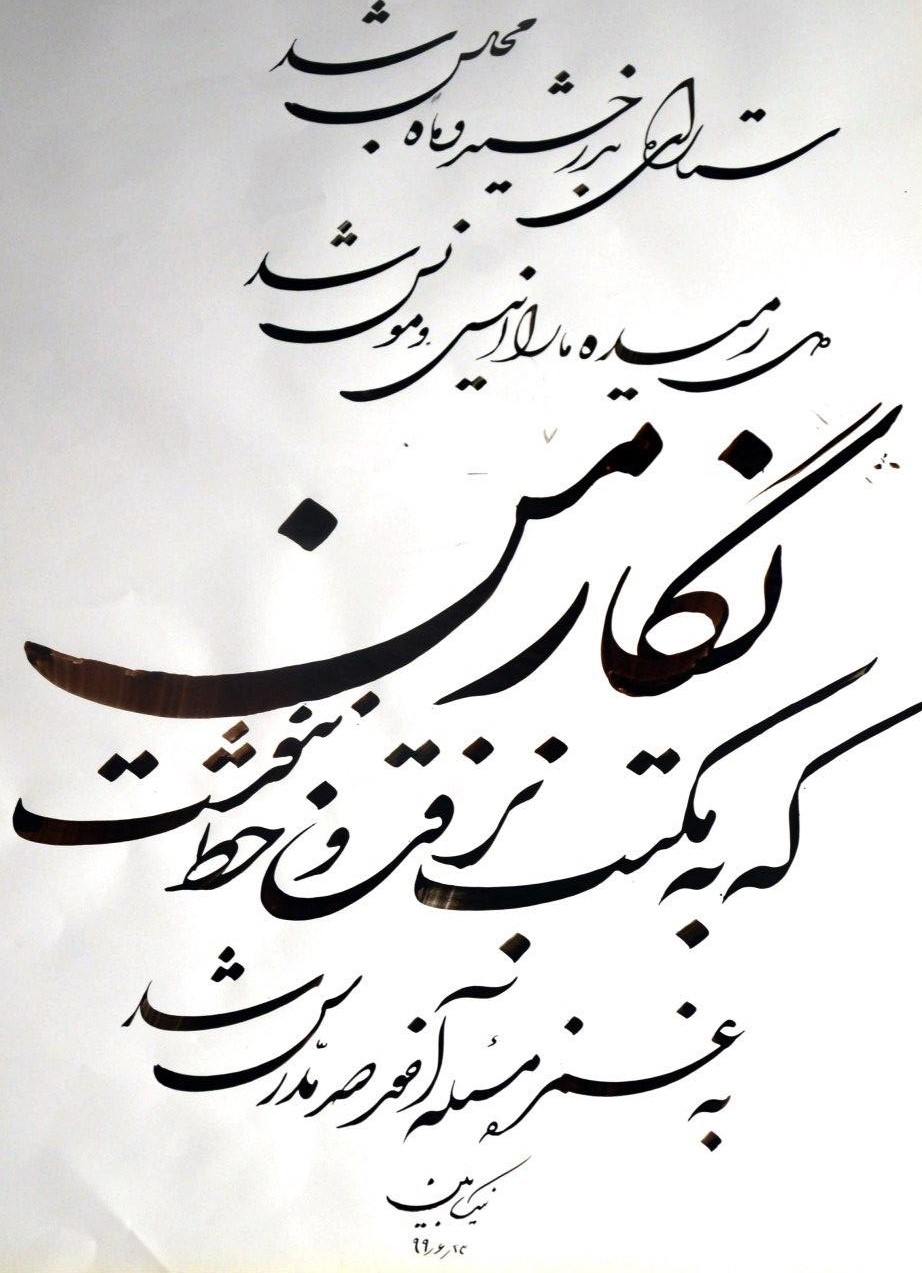 ستاره‌ای بدرخشید و ماه مجلس شد
دل رمیده ما را انیس و مونس شد
نگار من
که به مکتب نرفت و خط ننوشت
به غمزه مسئله آموز صد مدرس شد
نیک‌بین